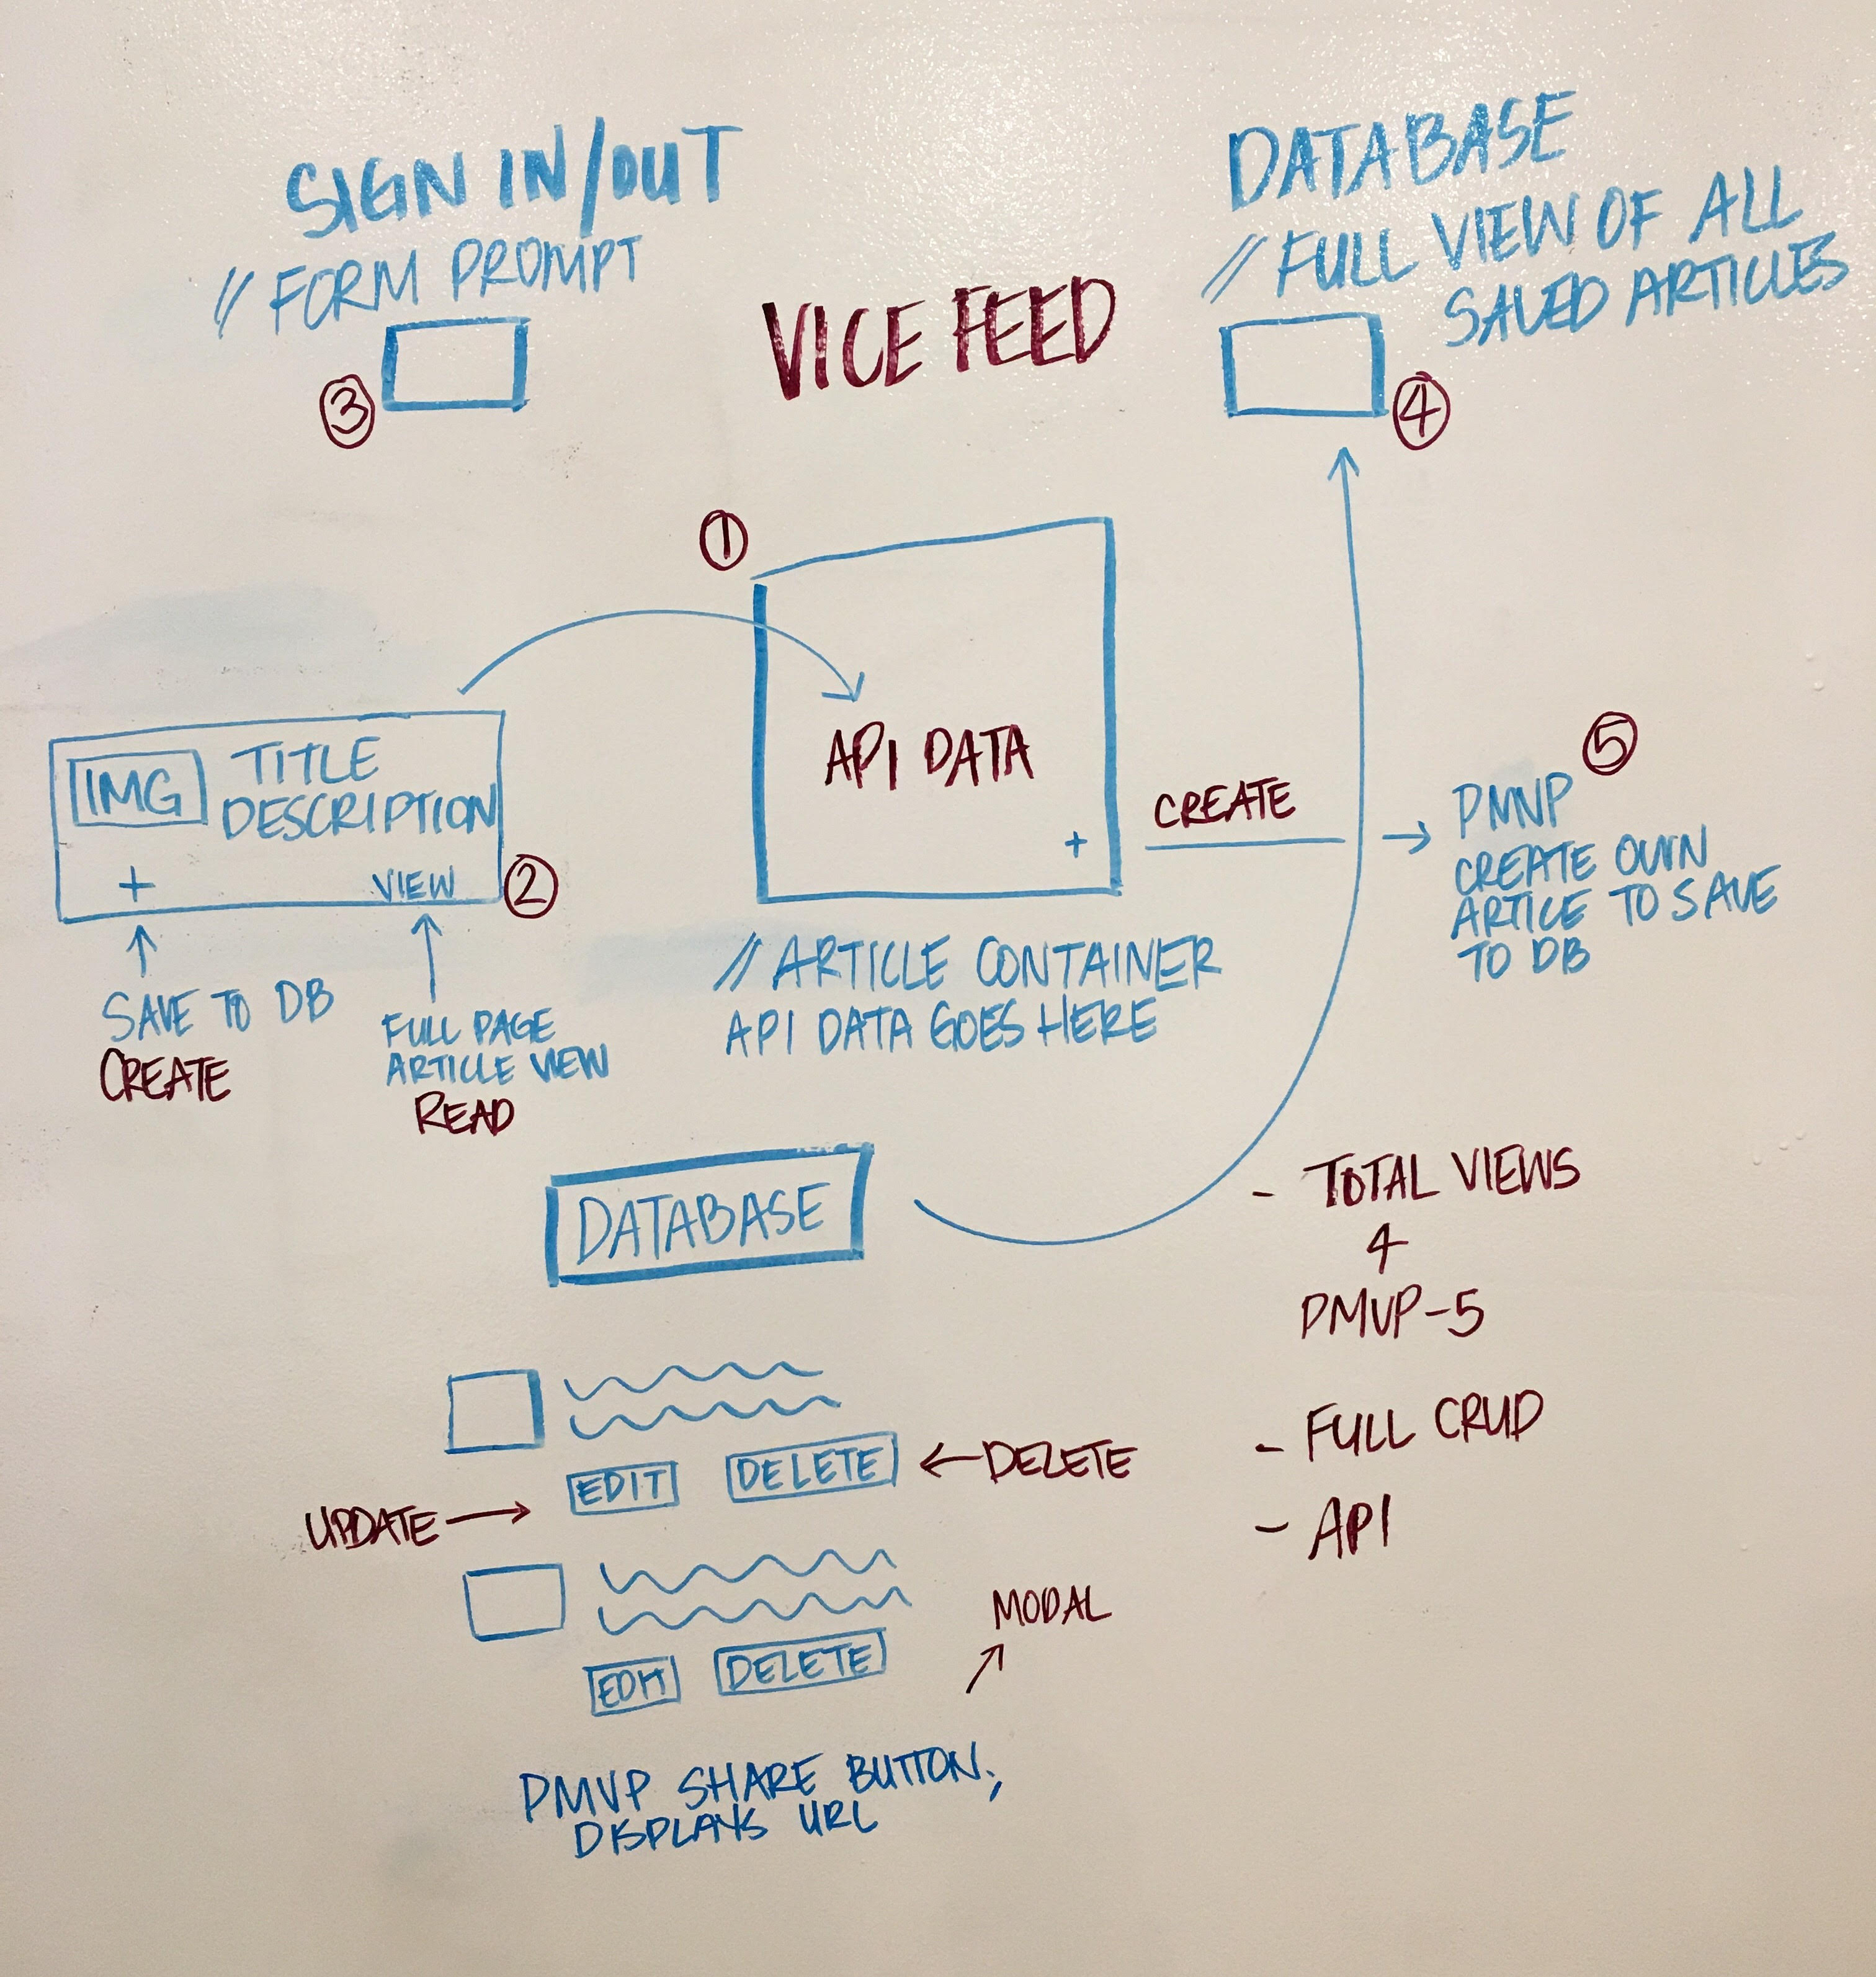 SIGN IN/OUT
// FORM PROMPT
3
VICE FEED
DATABASE
// FULL VIEW OF ALL
SAVED ARTICLES
4
1
API DATA
+
// ARTICLE CONTAINER
API DATA GOES HERE
IMG
TITLE
DESCRIPTION
+
VIEW
2
SAVE TO DB
CREATE
FULL PAGE
ARTICLE VIEW
READ
CREATE
5
PMNP
CREATE OWN
ARTICE TO SAVE
TO DB
DATABASE
EDIT
DELETE
DELETE
UPDATE
EDIT
DELETE
MODAL
PMVP SHARE BUTTON;
DISPLAYS URL
- TOTAL VIEWS
4
PMVP-5
- FULL CRUD
- API